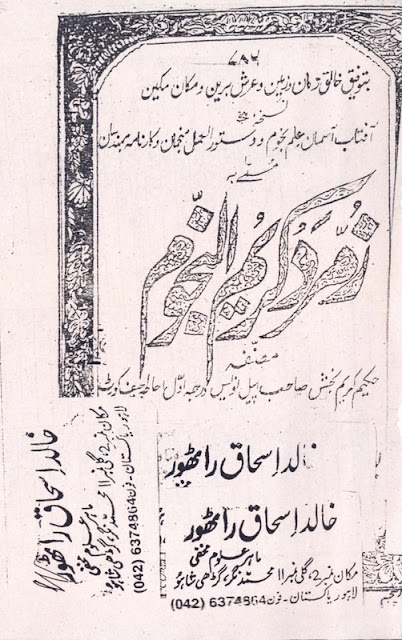 ۷۸۶
بتوفیق خالق زمان و زمین و عرش برین و مکان مکین
نسخہ
آفتاب آسمان علم نجوم و دستور العمل منجمان و کارنامہ
مسمے بہ
زمرد کریم النجوم
مصنفہ
حکیم کریم بخش صاحب اپیل نویس درجہ اول احاطہ چیف کورٹ
خالد اسحاق راٹھور
خالد اسحاق راٹھور
ماہر علوم مخفی
مکان نمبر 2، گلی نمبر 11 محمد نگر، گڑھی شاہو
لاہور پاکستان - فون 6374864 (042)
خالد اسحاق راٹھور
ماہر علوم مخفی
مکان نمبر 2، گلی نمبر 11 محمد نگر، گڑھی شاہو
لاہور پاکستان - فون 6374864 (042)